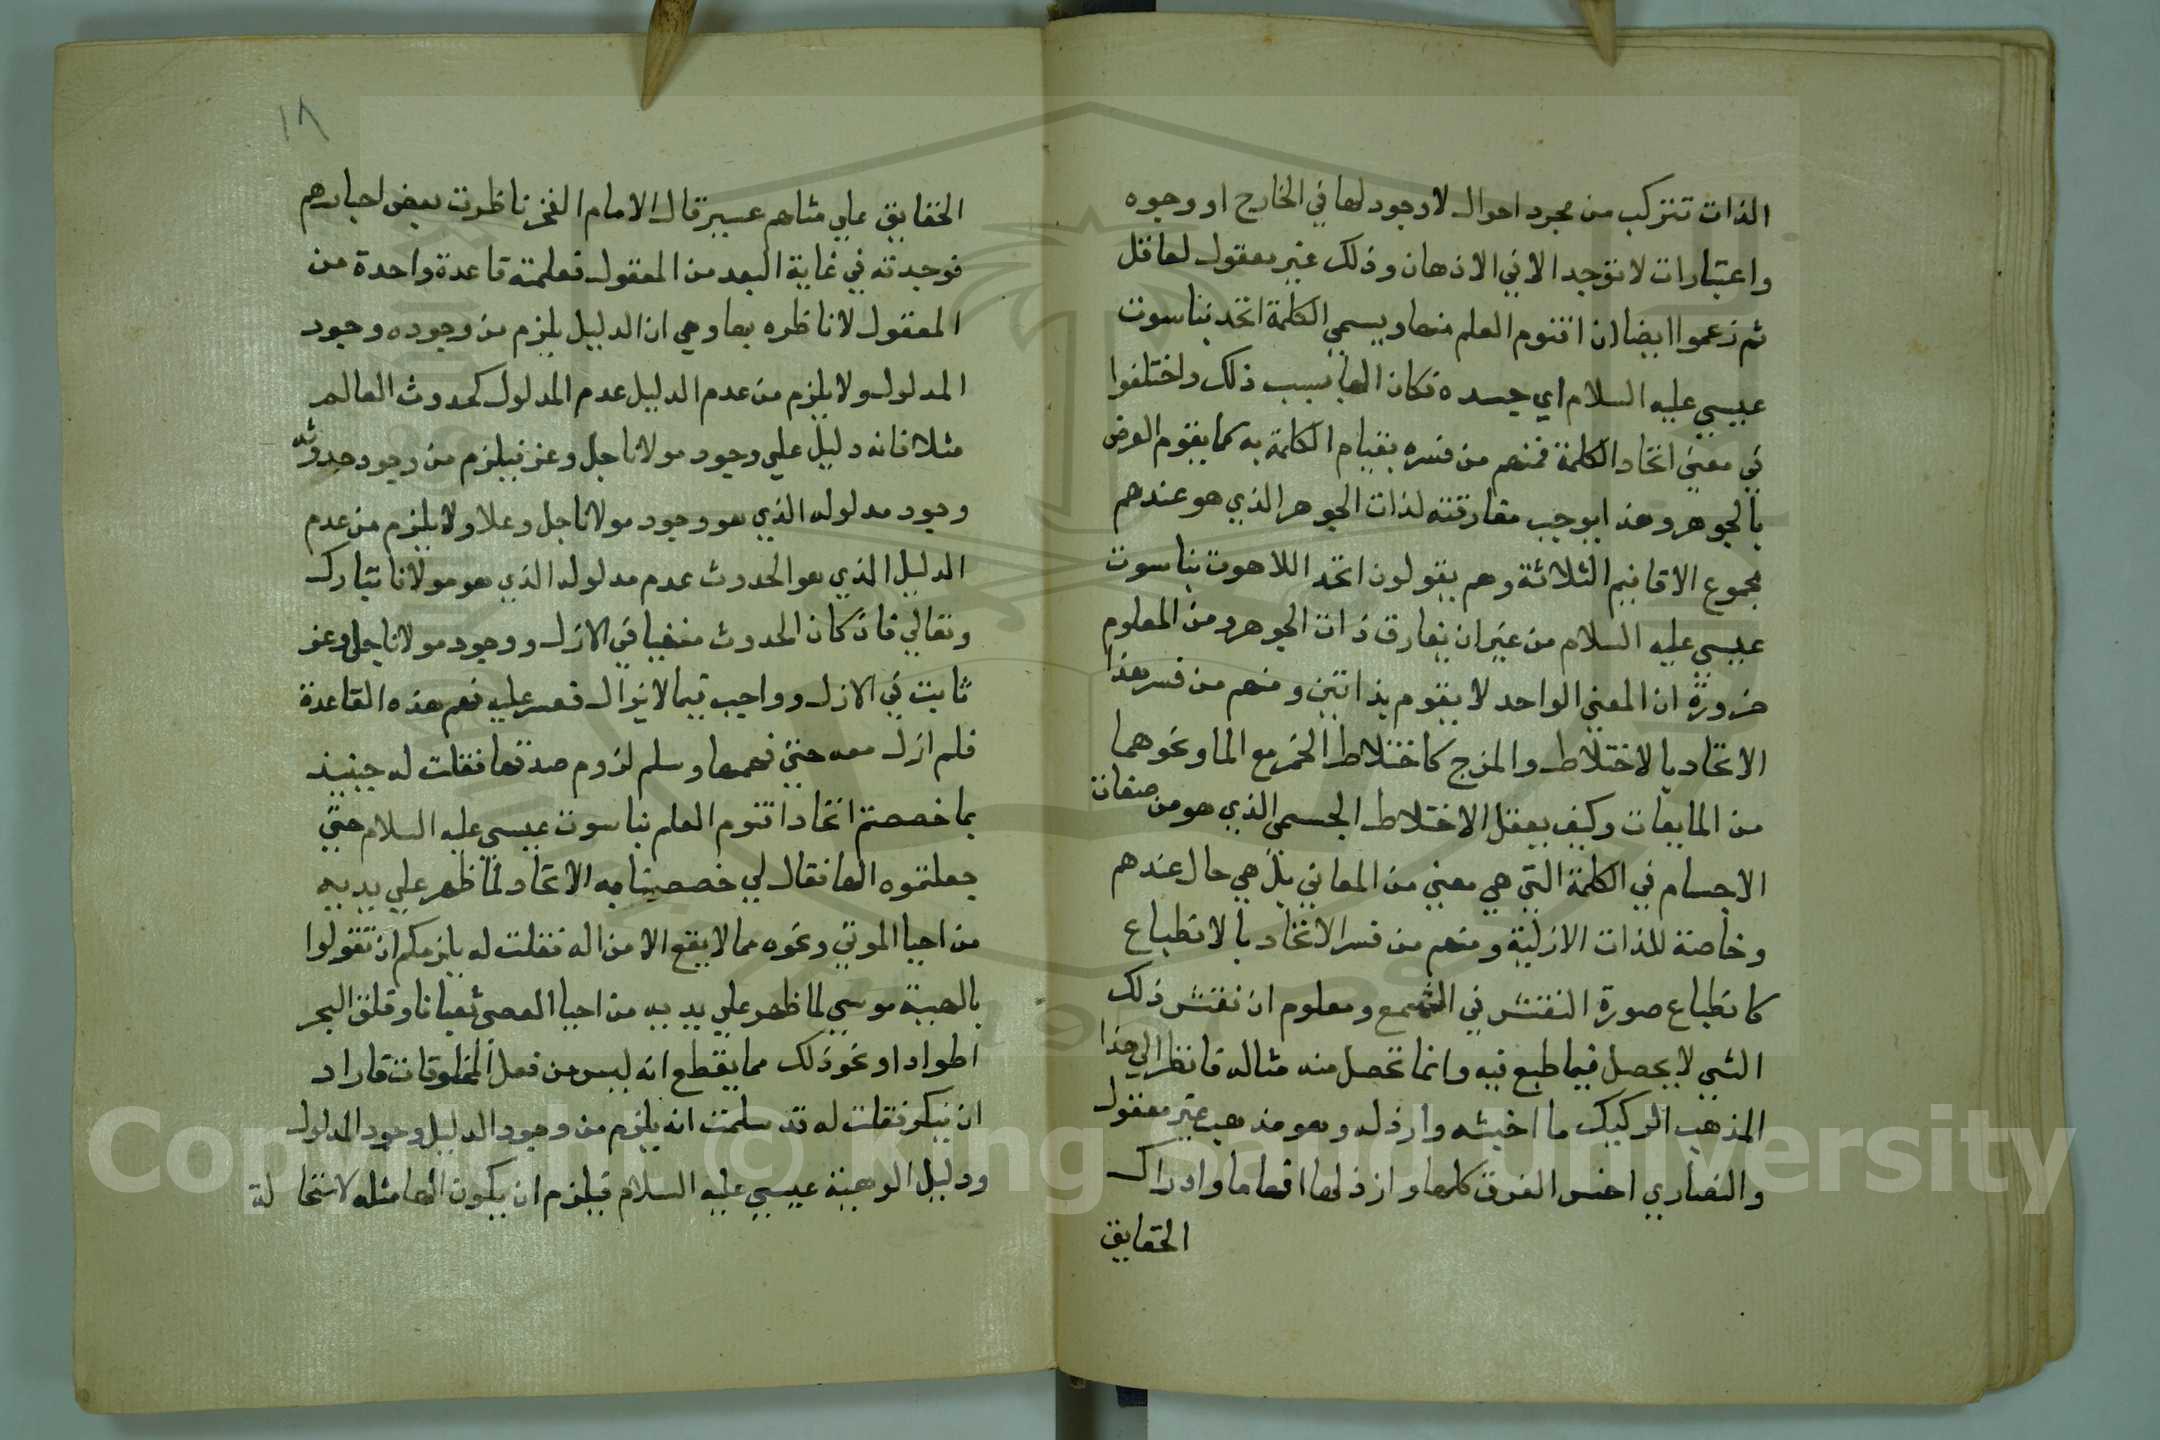 الذات تتركب من مجرد احوال لا وجود لها في الخارج او وجوه
واعتبارات لا توجد الا في الاذهان وذلك غير معقول لعاقل
ثم زعموا ايضا ان اقنوم العلم منها ويسمي الكلمة اتحد بناسوت
عيسي عليه السلام اي جسده فكان الها بسبب ذلك واختلفوا
في معني اتحاد الكلمة فمنهم من فسره بقيام الكلمة به كما يقوم العرض
بالجوهر وهذا يوجب مفارقته لذات الجوهر الذي هو عندهم
مجموع الاقانيم الثلاثة وهم يقولون اتحد اللاهوت بناسوت
عيسي عليه السلام من غير ان يفارق ذات الجوهر ومن المعلوم
ضرورة ان المعني الواحد لا يقوم بذاتين ومنهم من فسر هذا
الاتحاد بالاختلاط والمزج كاختلاط الخمر مع الما ونحوهما
من المايعات وكيف يعقل الاختلاط الجسمي الذي هو من صفات
الاجسام في الكلمة التي هي معني من المعاني بل هي حال عندهم
وخاصة للذات الازلية ومنهم من فسر الاتحاد بالانطباع
كانطباع صورة النقش في الشمع ومعلوم ان نقش ذلك
الشي لا يحصل فيما طبع فيه وانما تحصل منه مثاله فانظر الي هذا
المذهب الركيك ما اخبثه وارذله وهو مذهب غير معقول
والنصاري اخس الفرق كلها وارذلها افهاما وادراك
الحقايق
١٨
الحقايق علي مثاهم عسير قال الامام الفخر ناظرت بعض احبارهم
فوجدته في غاية البعد من المعقول فعلمته قاعدة واحدة من
المعقول لاناظره بها وهي ان الدليل يلزم من وجوده وجود
المدلول ولا يلزم من عدم الدليل عدم المدلول كحدوث العالم
مثلا فانه دليل علي وجود مولانا جل وعز فيلزم من وجود حدوثه
وجود مدلوله الذي هو وجود مولانا جل وعلا ولا يلزم من عدم
الدليل الذي هو الحدوث عدم مدلوله الذي هو مولانا تبارك
وتعالي فان كان الحدوث منفيا في الازل ووجود مولانا جل وعز
ثابت في الازل وواجب فيما لا يزال فعسر عليه فهم هذه القاعدة
فلم ازل معه حتي فهمها وسلم لزوم صدقها فقلت له حينيذ
بما خصصتم اتحاد اقنوم العلم بناسوت عيسي عليه السلام حتي
جعلتموه الها فقال لي خصصناه به الاتحاد لما ظهر علي يديه
من احيا الموتي ونحوه مما لا يقع الا من اله فقلت له يلزمكم ان تقولوا
بالهية موسي لما ظهر علي يديه من احيا العصي ثعبانا وفلق البحر
اطوادا ونحو ذلك مما يقطع انه ليس من فعل المخلوقات فاراد
ان ينكر فقلت له قد سلمت انه يلزم من وجود الدليل وجود المدلول
ودليل الوهية عيسي عليه السلام فيلزم ان يكون الها مثله لاستحالة
Copyright © King Saud University